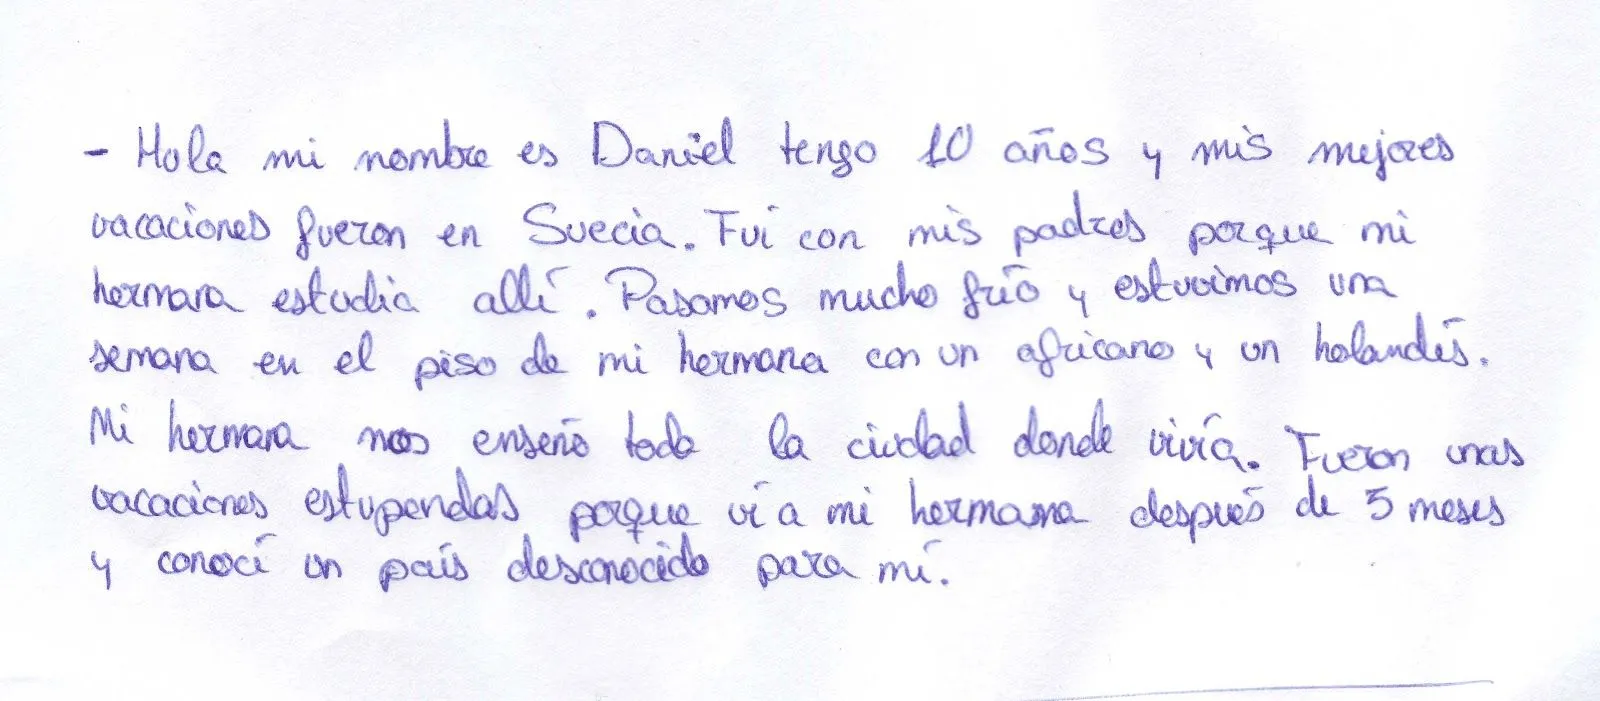 - Hola mi nombre es Daniel tengo 10 años y mis mejores
vacaciones fueron en Suecia. Fui con mis padres porque mi
hermana estudia allí. Pasamos mucho frío y estuvimos una
semana en el piso de mi hermana con un africano y un holandés.
Mi hermana nos enseñó toda la ciudad donde vivía. Fueron unas
vacaciones estupendas porque vi a mi hermana después de 5 meses
y conocí un país desconocido para mí.